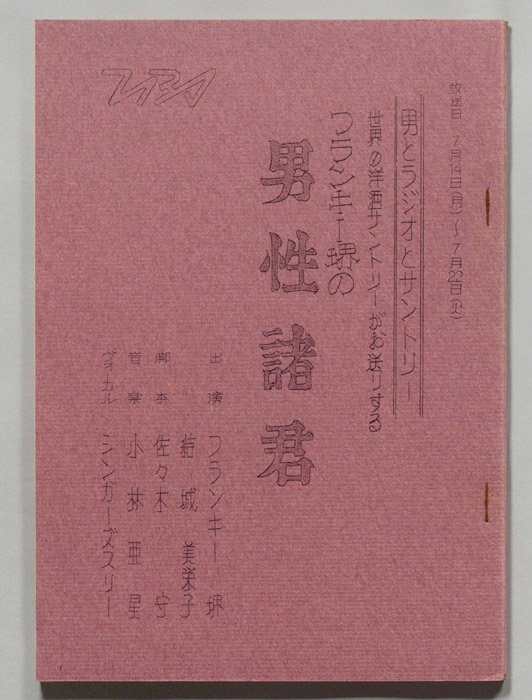 放送日 7月14日(月)〜7月22日(火)
男とラジオとサントリー
世界の洋酒サントリーがお送りする
フランキー堺の
男性諸君
出演 フランキー堺
結城美栄子
脚本 佐々木守
音楽 小林亜星
ヴォーカル シンガーズスリー